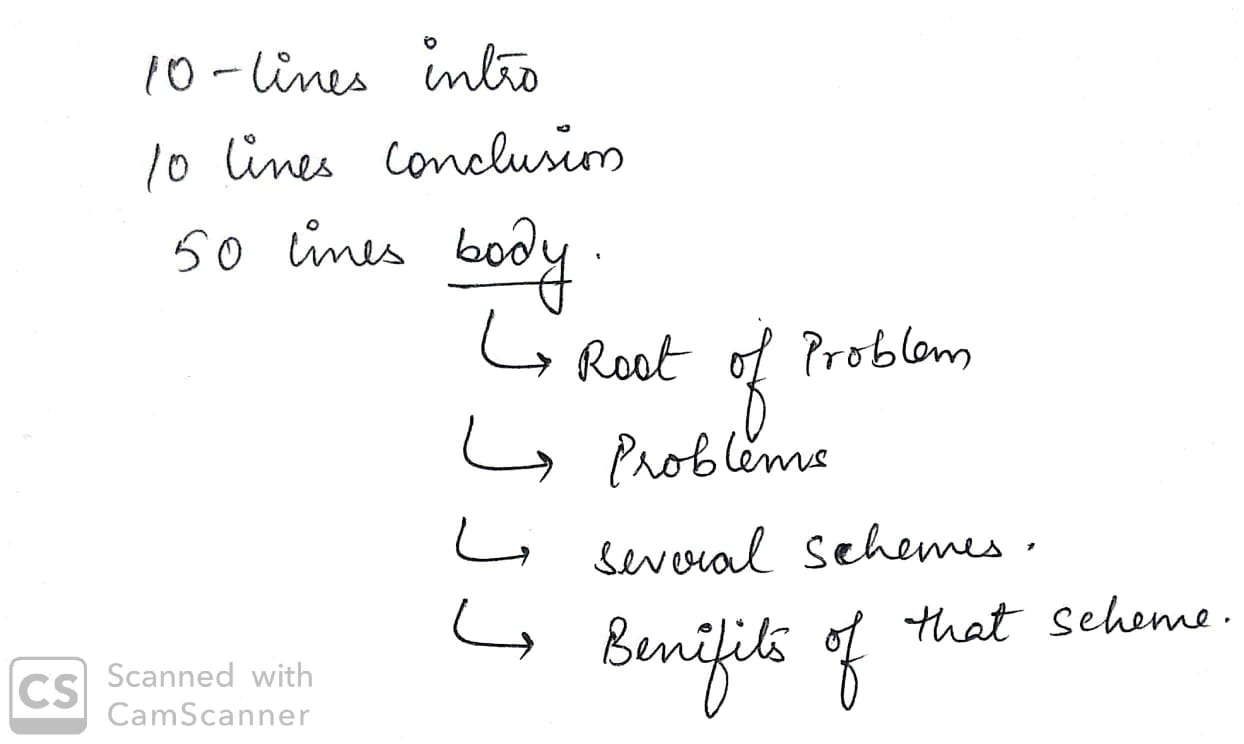 10-lines intro
10 lines conclusion
50 lines body.
↳ Root of Problem
↳ Problems
↳ several schemes.
↳ Benifits of that scheme.
CS Scanned with
CamScanner